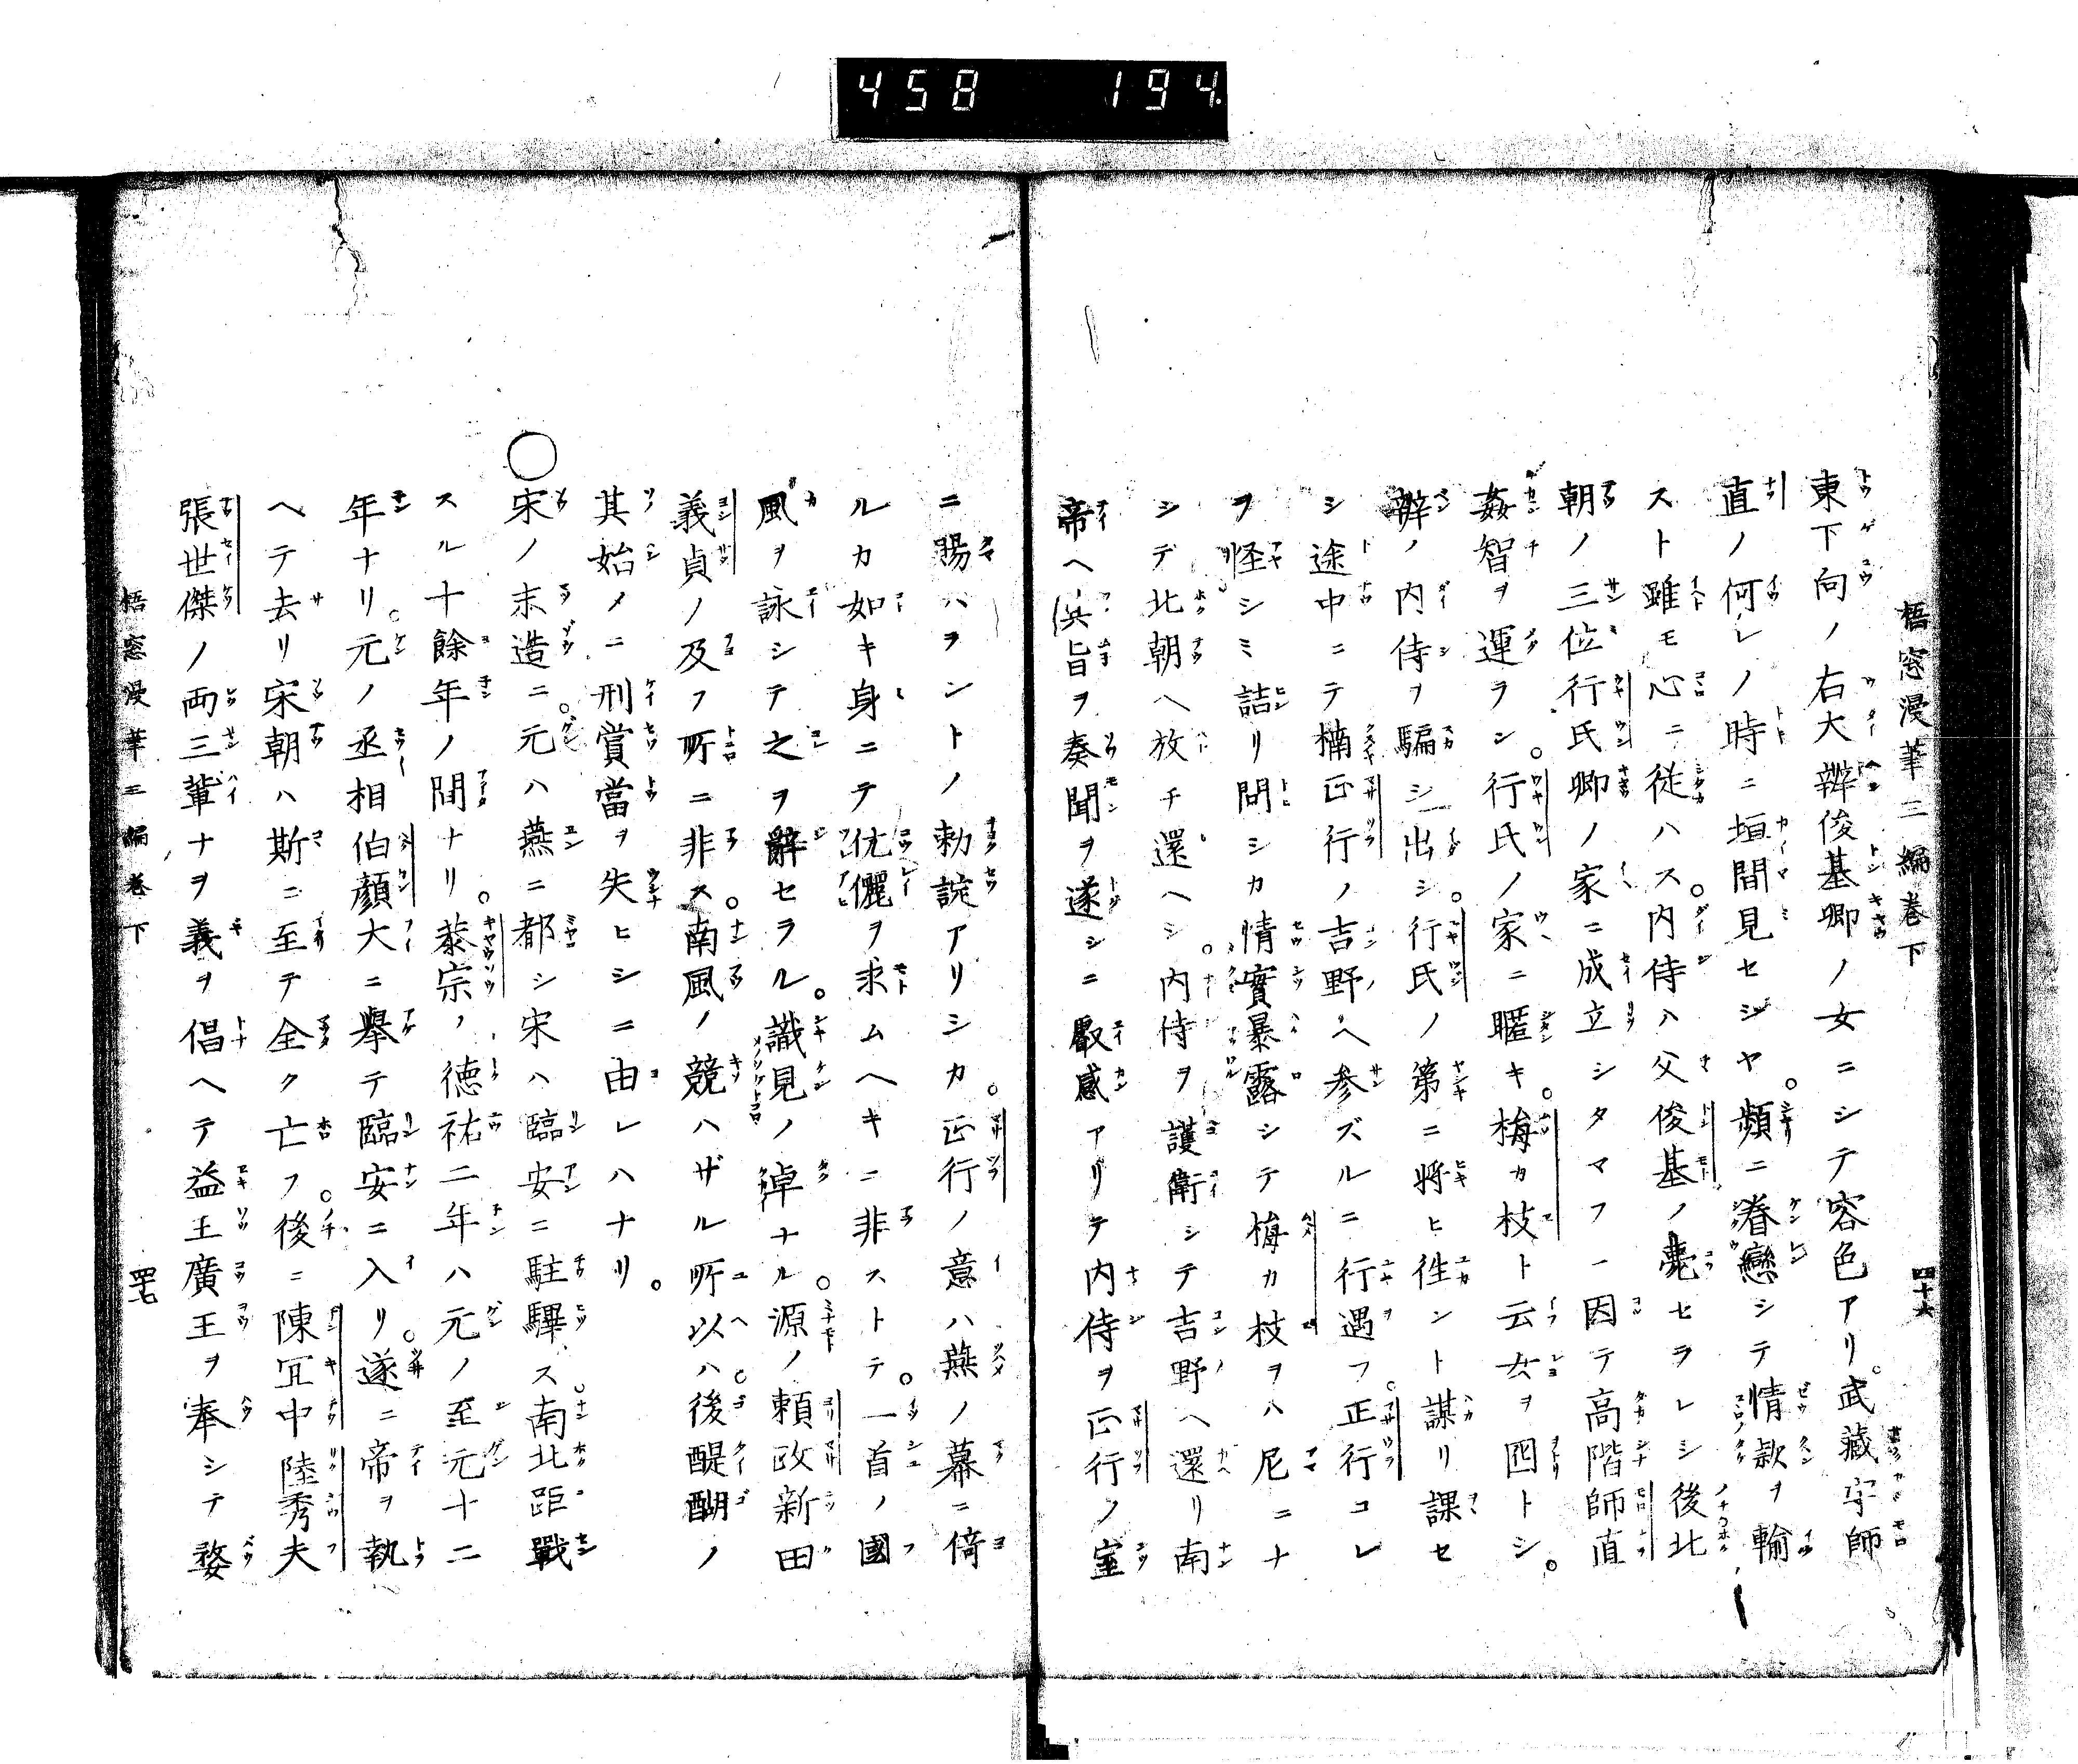 458 194
梧窓漫筆三編巻下
四十六
東下向ノ右大辨俊基卿ノ女ニシテ容色アリ。武藏守師
直ノ何レノ時ニ垣間見セシヤ。頻ニ眷戀シテ情款ヲ輸
スト雖モ心ニ從ハス。内侍ハ父俊基ノ薨セラレシ後北
朝ノ三位行氏卿ノ家ニ成立シタマフ一因テ高階師直
姦智ヲ運ラシ。行氏ノ家ニ暱キ。梅カ枝ト云女ヲ囮トシ。
辨ノ内侍ヲ騙シ出シ。行氏ノ第ニ將ヒ徃ント謀リ課セ
シ途中ニテ楠正行ノ吉野ヘ参ズルニ行遇フ。正行コレ
ヲ怪シミ詰リ問シカ情實暴露シテ梅カ枝ヲハ尼ニナ
シテ北朝ヘ放チ還ヘシ。内侍ヲ護衛シテ吉野ヘ還リ南
帝ヘ其旨ヲ奏聞ヲ遂シニ叡感アリテ内侍ヲ正行ノ室
ニ賜ハラントノ勅諚アリシカ。正行ノ意ハ燕ノ幕ニ倚
ルカ如キ身ニテ伉儷ヲ求ムヘキニ非ストテ。一首ノ國
風ヲ詠シテ之ヲ辭セラル。識見ノ卓ナル。源ノ頼政新田
義貞ノ及フ所ニ非ス。南風ノ競ハザル所以ハ。後醍醐ノ
其始メニ刑賞當ヲ失ヒシニ由レハナリ。
○宋ノ末造ニ。元ハ燕ニ都シ宋ハ臨安ニ駐驆ス。南北距戰
スル十餘年ノ間ナリ。恭宗ノ德祐二年ハ元ノ至元十二
年ナリ。元ノ丞相伯顏大ニ擧テ臨安ニ入リ。遂ニ帝ヲ執
ヘテ去リ宋朝ハ斯ニ至テ全ク亡フ。後ニ陳宜中陸秀夫
張世傑ノ両三輩ナヲ義ヲ倡ヘテ益王廣王ヲ奉シテ婺
梧窓漫筆三編巻下
四十七